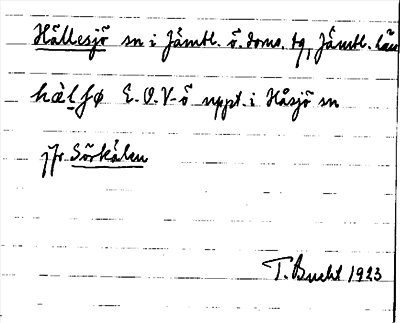 Hällesjö sn i Jämtl. ö. doms. tg, Jämtl. län
hälſø E.O.V-ö uppt. i Håsjö sn
jfr Sörkälen
T. Bucht 1923